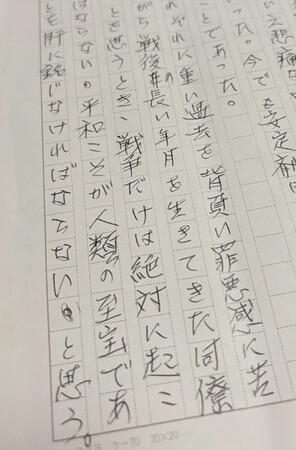 いえ悲痛な
った。今でも安定剤
ことであった。
れぞれに重い過去を背負い罪悪感に苦
がら戦後の長い年月を生きてきた同僚
とも思うとき、戦争だけは絶対に起こ
はならない。平和こそが人類の至宝であ
とも肝に銘じなければならないと思う。
ケ-70 20×20